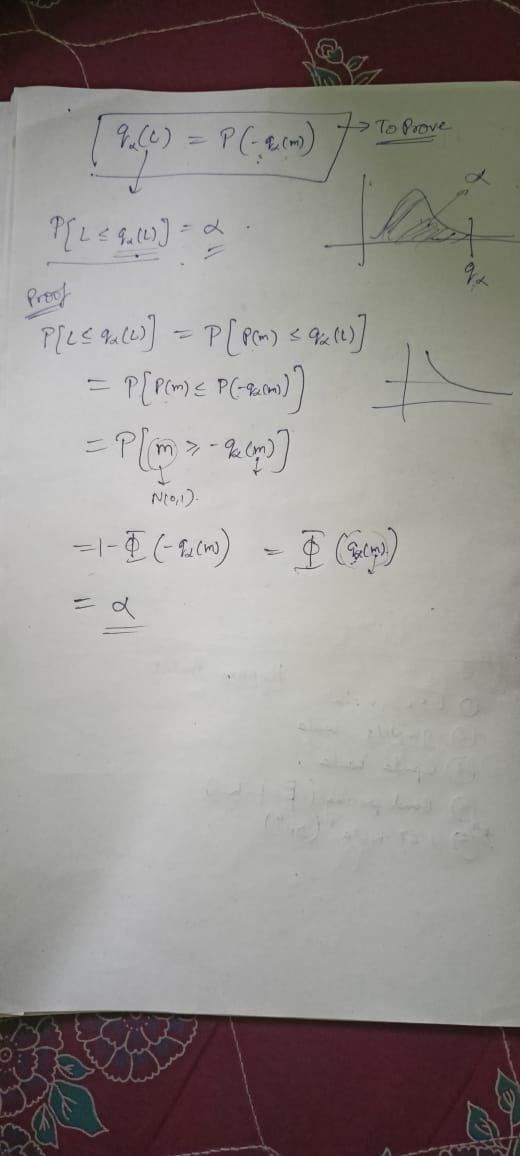 q_α(L) = P(-q_α(m)) → To Prove
P[L ≤ q_α(L)] = α
α
q_α
Proof
P[L ≤ q_α(L)] = P[P(m) ≤ q_α(L)]
= P[P(m) ≤ P(-q_α(m))]
= P[m ≥ -q_α(m)]
N(0,1).
= 1 - Φ(-q_α(m)) = Φ(q_α(m))
= α